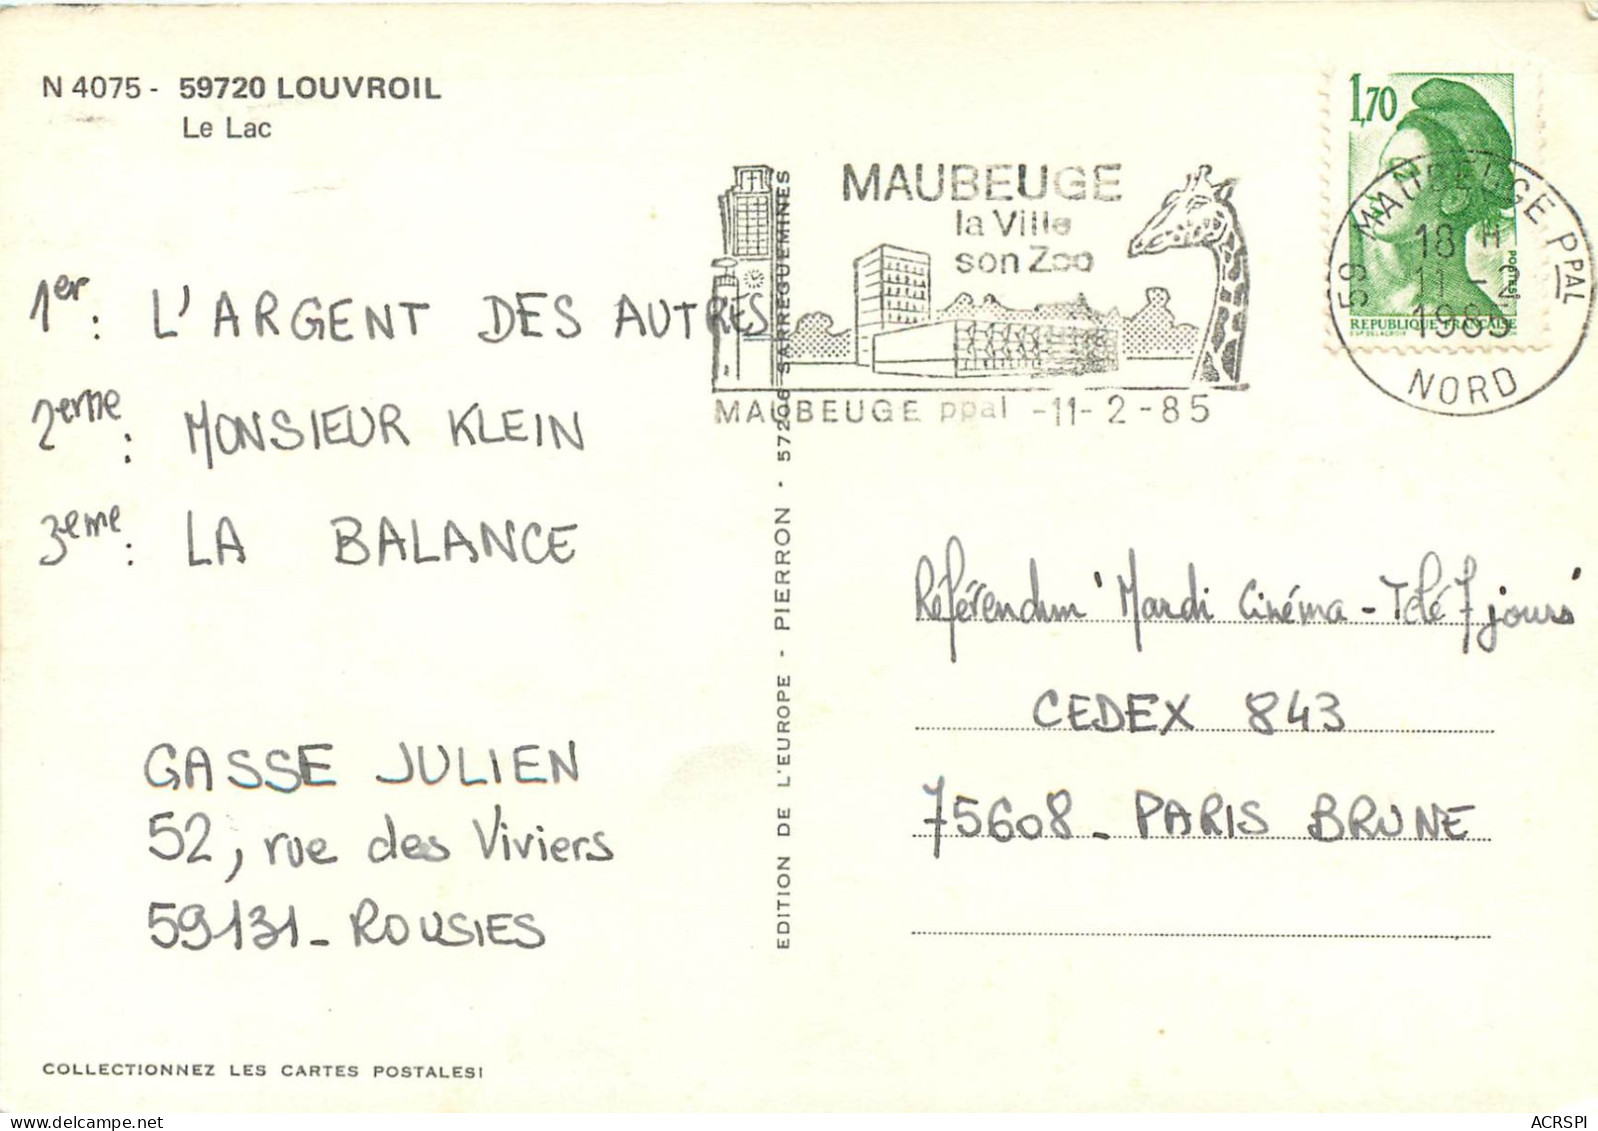 N 4075 - 59720 LOUVROIL
Le Lac
1er: L'ARGENT DES AUTRES
2eme: MONSIEUR KLEIN
3eme: LA BALANCE
GASSE JULIEN
52, rue des Viviers
59131 - ROUSIES
COLLECTIONNEZ LES CARTES POSTALES!
EDITION DE L'EUROPE - PIERRON - 57206 SARREGUEMINES
MAUBEUGE
la Ville
son Zoo
MAUBEUGE ppal -11-2-85
1,70
POSTES
REPUBLIQUE FRANÇAISE
59 MAUBEUGE PPAL
18 H
11 - 2
1985
NORD
Référendum "Mardi Cinéma - Télé 7 jours"
CEDEX 843
75608 - PARIS BRUNE
ACRSPI